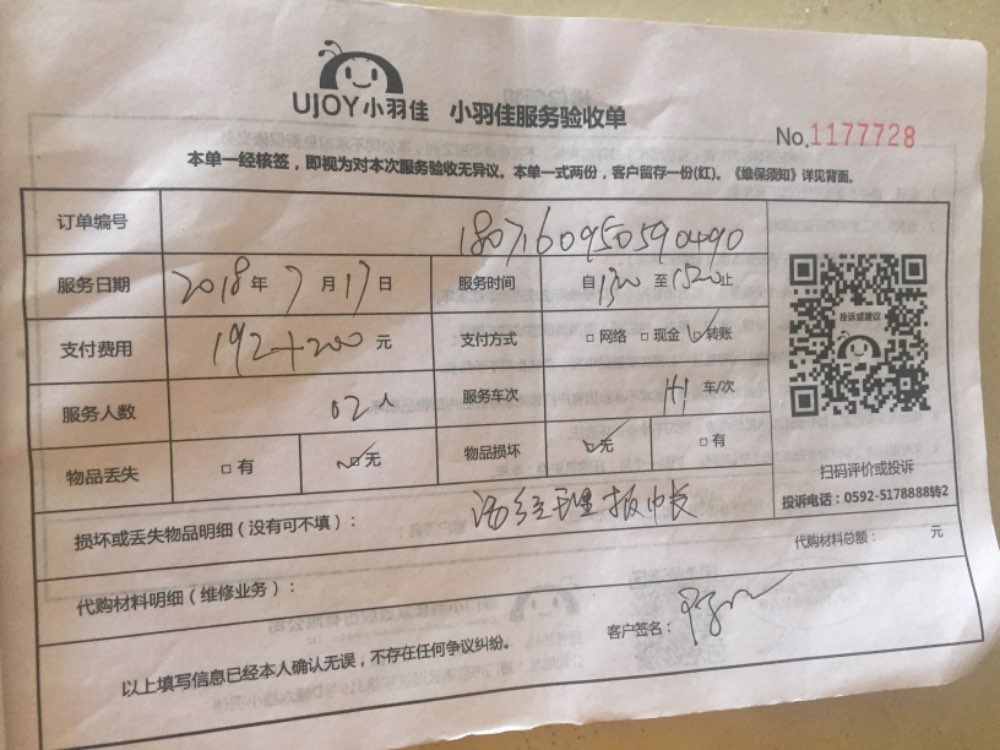 UJOY小羽佳 小羽佳服务验收单
No.1177728
本单一经核签，即视为对本次服务验收无异议。本单一式两份，客户留存一份(红)。《维保须知》详见背面。
订单编号 1807160950590490
服务日期 2018年7月17日 服务时间 自1320至1520止
支付费用 192+200元 支付方式 □网络 □现金 ☑转账
投诉或建议
服务人数 02人 服务车次 车/次
物品丢失 □有 ☑无 物品损坏 ☑无 □有
扫码评价或投诉
投诉电话：0592-5178888转2
损坏或丢失物品明细（没有可不填）：
代购材料总额： 元
代购材料明细（维修业务）：
客户签名：
以上填写信息已经本人确认无误，不存在任何争议纠纷。